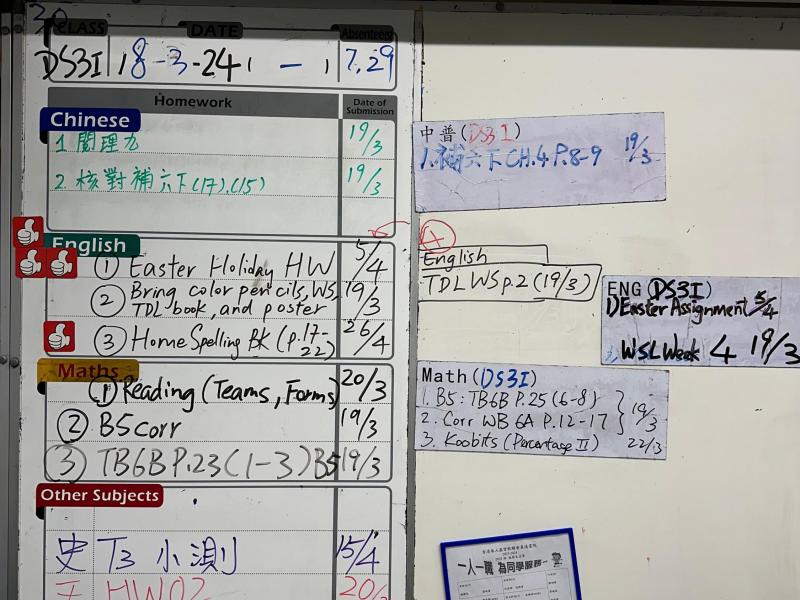 CLASS DATE Absentees
DS3I 18-3-24 1 - 1 7,29
Homework Date of Submission
Chinese
1. 閱理九 19/3
2. 核對補六下(17).(15) 19/3
English
① Easter Holiday HW 5/4
② Bring color pencils, WS,
TDL book, and poster 19/3
③ Home Spelling BK (p.17-
22) 26/4
Maths
① Reading (Teams, Forms) 20/3
② B5 corr 19/3
③ TB6B P.23 (1-3) B5 19/3
Other Subjects
史 T3 小測 15/4
HW02 20/
中普(DS3I)
1.補六下 CH.4 P.8-9 19/3
A
English
TDL WS p.2 (19/3)
ENG (DS3I)
1) Easter Assignment 5/4
WSL Week 4 19/3
Math (DS3I)
1. B5: TB6B P.25 (6-8)
2. Corr WB 6A P.12-17 } 19/3
3. Koobits (Percentage II) 22/3
一人一職 為同學服務